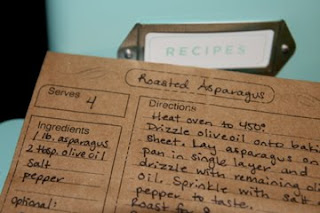 RECIPES
Roasted Asparagus
Serves 4
Directions
Heat oven to 450°
Drizzle olive oil onto baki
sheet. Lay asparagus on
pan in single layer and
drizzle with remaining ol
oil. Sprinkle with salt
pepper to taste.
Roast for
Ingredients
1 lb. asparagus
2 tbsp. olive oil
salt
pepper
optional: